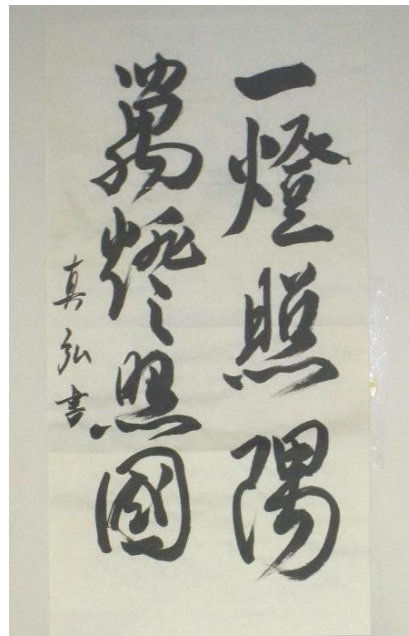 一燈照隅
萬燈照國
真弘書